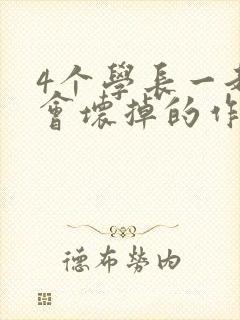 4个學長一
會壞掉的作
德布勞內